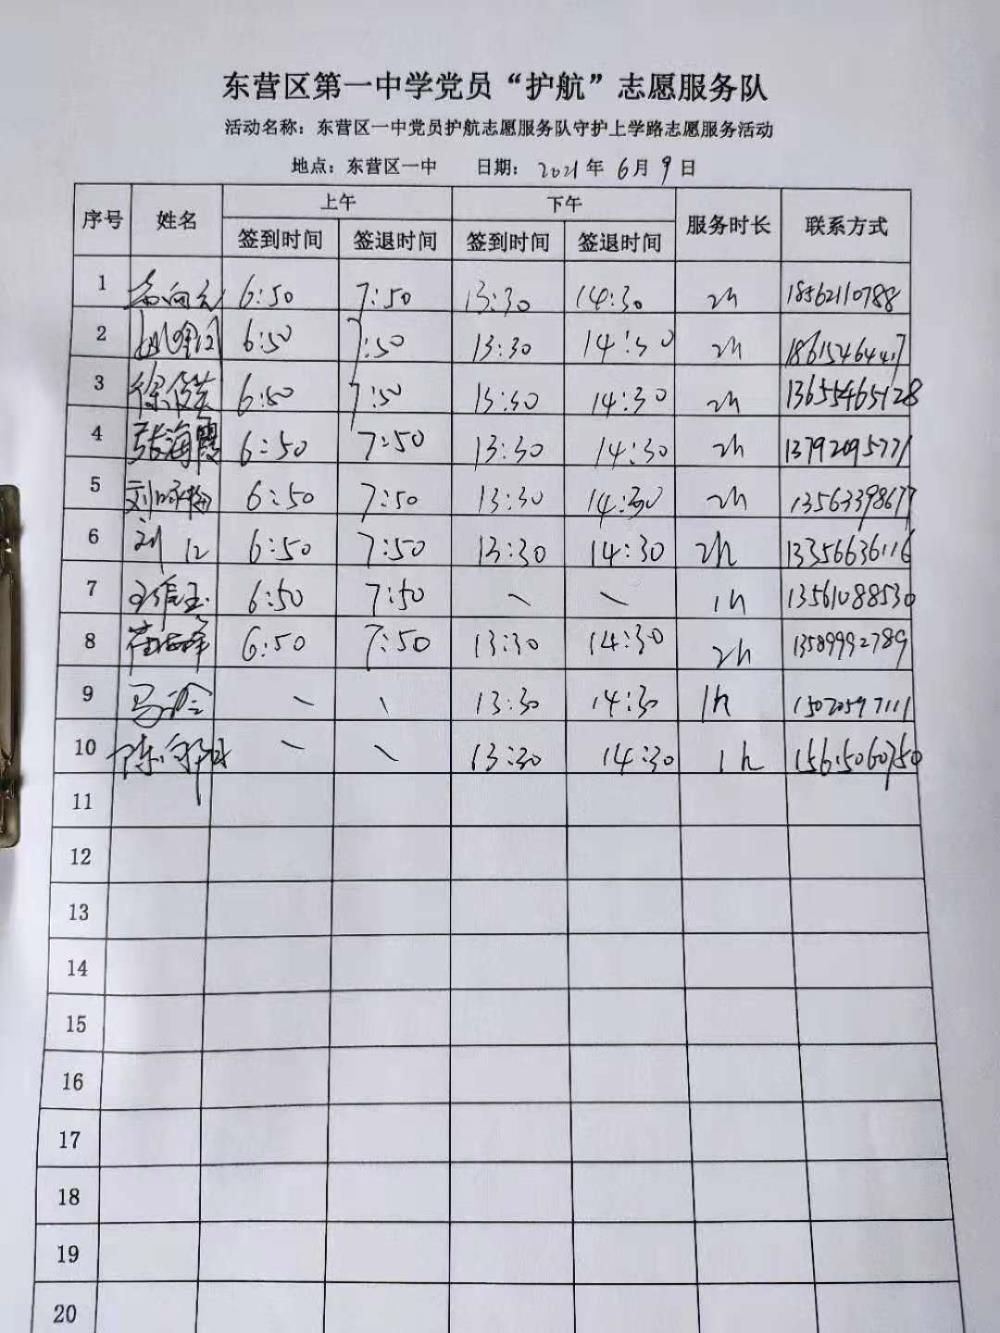 东营区第一中学党员“护航”志愿服务队
活动名称：东营区一中党员护航志愿服务队守护上学路志愿服务活动
地点：东营区一中 日期：2021年6月9日
序号 姓名 上午 下午 服务时长 联系方式
签到时间 签退时间 签到时间 签退时间
1 6:50 7:50 13:30 14:30 2h 18562110788
2 6:50 7:50 13:30 14:30 2h
3 6:50 7:50 13:30 14:30 2h 13655465128
4 张海霞 6:50 7:50 13:30 14:30 2h 13792095771
5 6:50 7:50 13:30 14:30 2h
6 6:50 7:50 13:30 14:30 2h 13356636116
7 6:50 7:50 \ \ 1h 13561088530
8 6:50 7:50 13:30 14:30 2h 13589992789
9 \ \ 13:30 14:30 1h 15020597111
10 \ \ 13:30 14:30 1h 15615060750
11
12
13
14
15
16
17
18
19
20